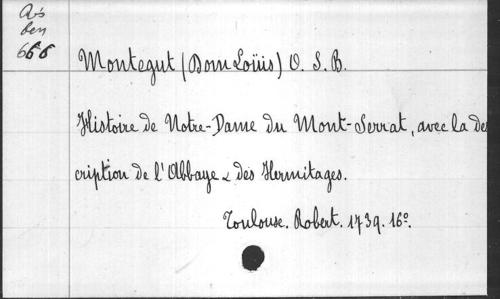 Rés
ben
666
Montegut (Dom Loüis) O. S. B.
Histoire de Notre-Dame du Mont-Serrat, avec la des
cription de l'Abbaye & des Hermitages.
Toulouse. Robert. 1739. 16º.